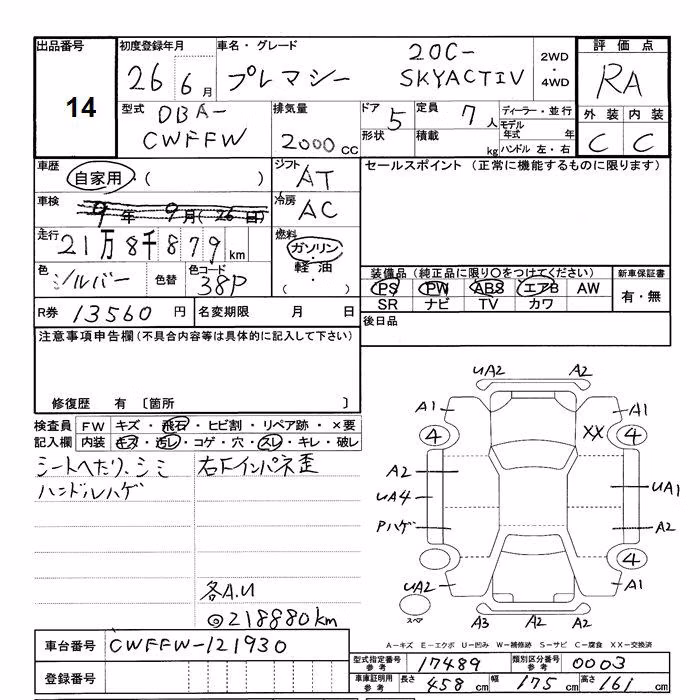 出品番号
14
初度登録年月
26 6月
車名・グレード
プレマシー
20C-
SKYACTIV
2WD
・
4WD
評価点
RA
外装 内装
C C
型式
DBA-
CWFFW
排気量
2000 CC
ドア 5
形状
定員 7 人
積載 kg
ディーラー・並行
モデル年式 年
ハンドル 左・右
車歴
自家用 ( )
シフト AT
セールスポイント (正常に機能するものに限ります)
車検
9年 9月(26日
冷房 AC
走行
21万8千879km
燃料
ガソリン
・
軽油
( ・ )
色 シルバー
色替
色コード 38P
装備品 (純正品に限り○をつけてください)
新車保証書
PS PW ABS エアB AW
SR ナビ TV カワ
有・無
R券 13560 円
名変期限 月 日
後日品
注意事項申告欄 (不具合内容等は具体的に記入して下さい)
修復歴 有 〔箇所 〕
検査員
記入欄
FW キズ・飛石・ヒビ割・リペア跡・×要
内装 キズ・汚レ・コゲ・穴・スレ・キレ・破レ
シートヘたり、シミ
ハンドルハゲ
右Fインパネ歪
各A.U
◎218880km
UA2 A2
A1 A1
4 XX 4
A2
UA4 UA1
Pハゲ A2
4
UA2 A1
スペア
A3 A2 A2
A-キズ E-エクボ U-凹み W-補修跡 S-サビ C-腐食 XX-交換済
車台番号 CWFFW-121930
登録番号
型式指定番号参考 17489
類別区分番号参考 0003
車庫証明用参考
長さ 458 cm
幅 175 cm
高さ 161 cm